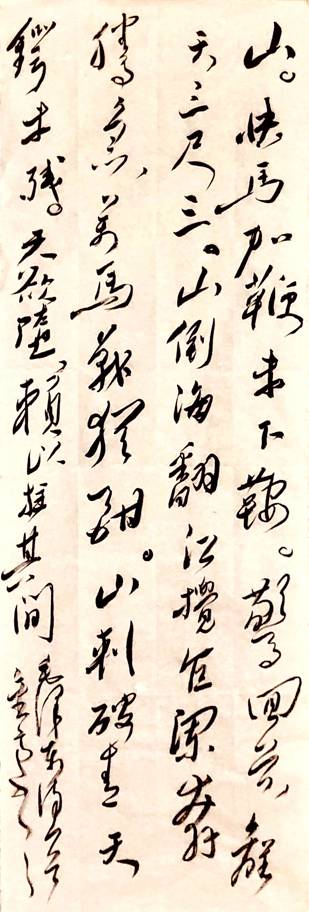 山。快馬加鞭未下鞍。驚回首離
天三尺三。山倒海翻江攪巨瀾奔
騰急、萬馬戰猶酣。山刺破青天
鍔未殘。天欲墮、賴以拄其間
毛澤東